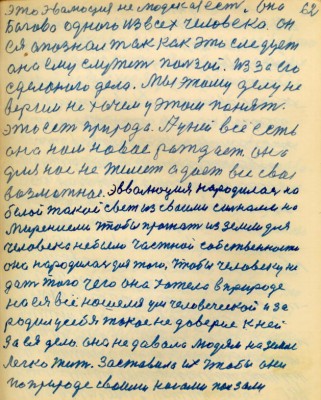 это эволюция не модек ест. она 62
Богово одного из всех человека. он
ся опознал так как это следует
она ему служет ползой. Из за его
сделоного дела. Мы этому делу не
верим не хочем у этом понят.
это ест природа. А у ней всё есть
она нам новое рождает. она
для нас не жалеет а дает всё свое
возможное. Эвалюция народилас на
белой такой свет из своими силнами на
Мирением. Чтобы прожат из земли для
человека небыли частной собственности
она народилас для того, чтобы человеку не
дат того чего она хотела в природе
но ся всё нашелся ум человеческой и за
родил у себя такое не доверие к ней
За ся дела она не давала людям на земле
легко жит. Заставила их чтобы они
по природе своими ногами ползали